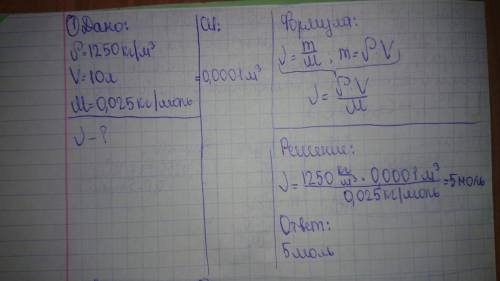 ① Дано:
ρ=1250 кг/м³
V=10л
M=0,025 кг/моль
ν-?
СИ:
=0,0001 м³
Формула:
ν = m/M, m=ρ·V
ν = ρ·V/M
Решение:
ν = 1250 кг/м³ · 0,0001 м³ / 0,025 кг/моль = 5 моль
Ответ:
5 моль